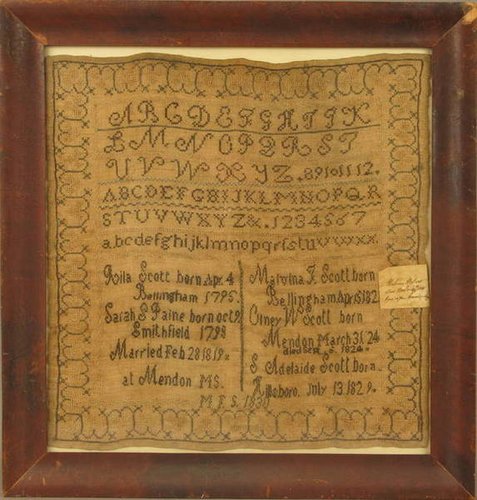 ABCDEFGHIJK
LMNOPQRST
UVWXYZ.89101112.
ABCDEFGHIJKLMNOPQR
STUVWXYZ&.1234567
abcdefghijklmnopqrſstuvwxyz
Scott born Apr. 4
Bellingham 1795.
Sarah S Paine born oct 9
Smithfield 1798
Married Feb 28 1819
at Mendon MS.
Marvina F. Scott born
Bellingham Apr 15 182
Olney W Scott born
Mendon March 31 '24
died 1824
S Adelaide Scott born.
July 13. 182
M F S. 183